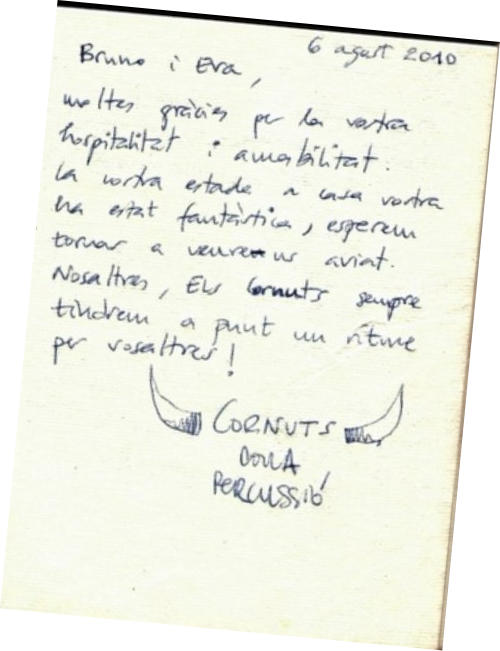 6 agost 2010
Bruno i Eva,
moltes gràcies per la vostra
hospitalitat i amabilitat.
La nostra estada a casa vostra
ha estat fantàstica, esperem
tornar a veure-us aviat.
Nosaltres, Els Cornuts sempre
tindrem a punt un ritme
per vosaltres!
CORNUTS
PERCUSSIÓ